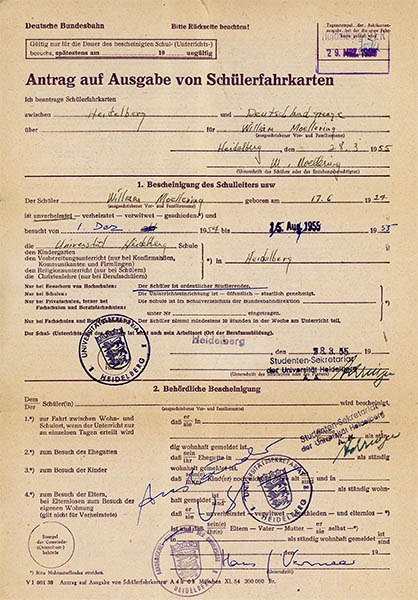 Deutsche Bundesbahn
Bitte Rückseite beachten!
Gültig nur für die Dauer des bescheinigten Schul- (Unterrichts-)
besuchs, spätestens am 19 ungültig
29. MRZ. 1955
Antrag auf Ausgabe von Schülerfahrkarten
Ich beantrage Schülerfahrkarten
zwischen Heidelberg und
über für William Moellering
(ausgeschriebener Vor- und Familienname)
Heidelberg, den 28.3 1955
W. Moellering
(Unterschrift des Schülers oder des Erziehungsberechtigten)
1. Bescheinigung des Schulleiters usw
Der Schüler William Moellering geboren am 17.6 1924
(ausgeschriebener Vor- und Familienname)
ist unverheiratet – verheiratet – verwitwet – geschieden*) und
besucht von 1. Dez 1954 bis 15. Aug. 1955 19 55
die Universität Heidelberg Schule
den Kindergarten
den Vorbereitungsunterricht (nur bei Konfirmanden,
Kommunikanten und Firmlingen)
den Religionsunterricht (nur bei Schülern)
die Christenlehre (nur bei Berufsschülern)
*) in Heidelberg
Nur bei Besuchern von Hochschulen: Der Schüler ist ordentlicher Studierender.
Nur bei Schulen: Die Unterrichtseinrichtung ist – öffentlich – staatlich genehmigt.
Nur bei Privatschulen, ferner bei Fachschulen und Berufsfachschulen: Die Schule ist im Schulverzeichnis der Bundesbahndirektion
unter Nr eingetragen.
Nur bei Fachschulen und Der Schüler nimmt mindestens 18 Stunden in der Woche am Unterricht teil.
Der Schul- (Unterrichts- ist auch sein Arbeitsort (Ort der Berufsausbildung).
Heidelberg
den 28.3.55 19
Studenten-Sekretariat
der Universität Heidelberg
UNIVERSITÄTSSEKRETARIAT HEIDELBERG
2. Behördliche Bescheinigung
Dem Schüler(in) wird bescheinigt,
(ausgeschriebener Vor- und Familienname)
1.*) zur Fahrt zwischen Wohn- und
Schulort, wenn der Unterricht nur
an einzelnen Tagen erteilt wird
daß er sie in
Studenten-Sekretariat
der Universität Heidelberg
dig wohnhaft gemeldet ist
2.*) zum Besuch des Ehegatten
3.*) zum Besuch der Kinder
wohnhaft gemeldet ist.
als ständig wohnhaft
4.*) zum Besuch der Eltern,
bei Elternlosen zum Besuch der
eigenen Wohnung
(gilt nicht für Verheiratete)
als ständig wohnhaft gemeldet ist
unverheiratet – verwitwet – geschieden – und elternlos – *)
Eltern – Vater – Mutter – er sie selbst – *)
als ständig wohnhaft gemeldet
UNIVERSITÄTSSEKRETARIAT HEIDELBERG
Stempel
der Gemeinde-
(Ortsteil-)
behörde
den 19
(Unterschrift)
*) Bitte Nichtzutreffendes streichen.
Antrag auf Ausgabe von Schülerfahrkarten A 4 München XI. 54 300 000